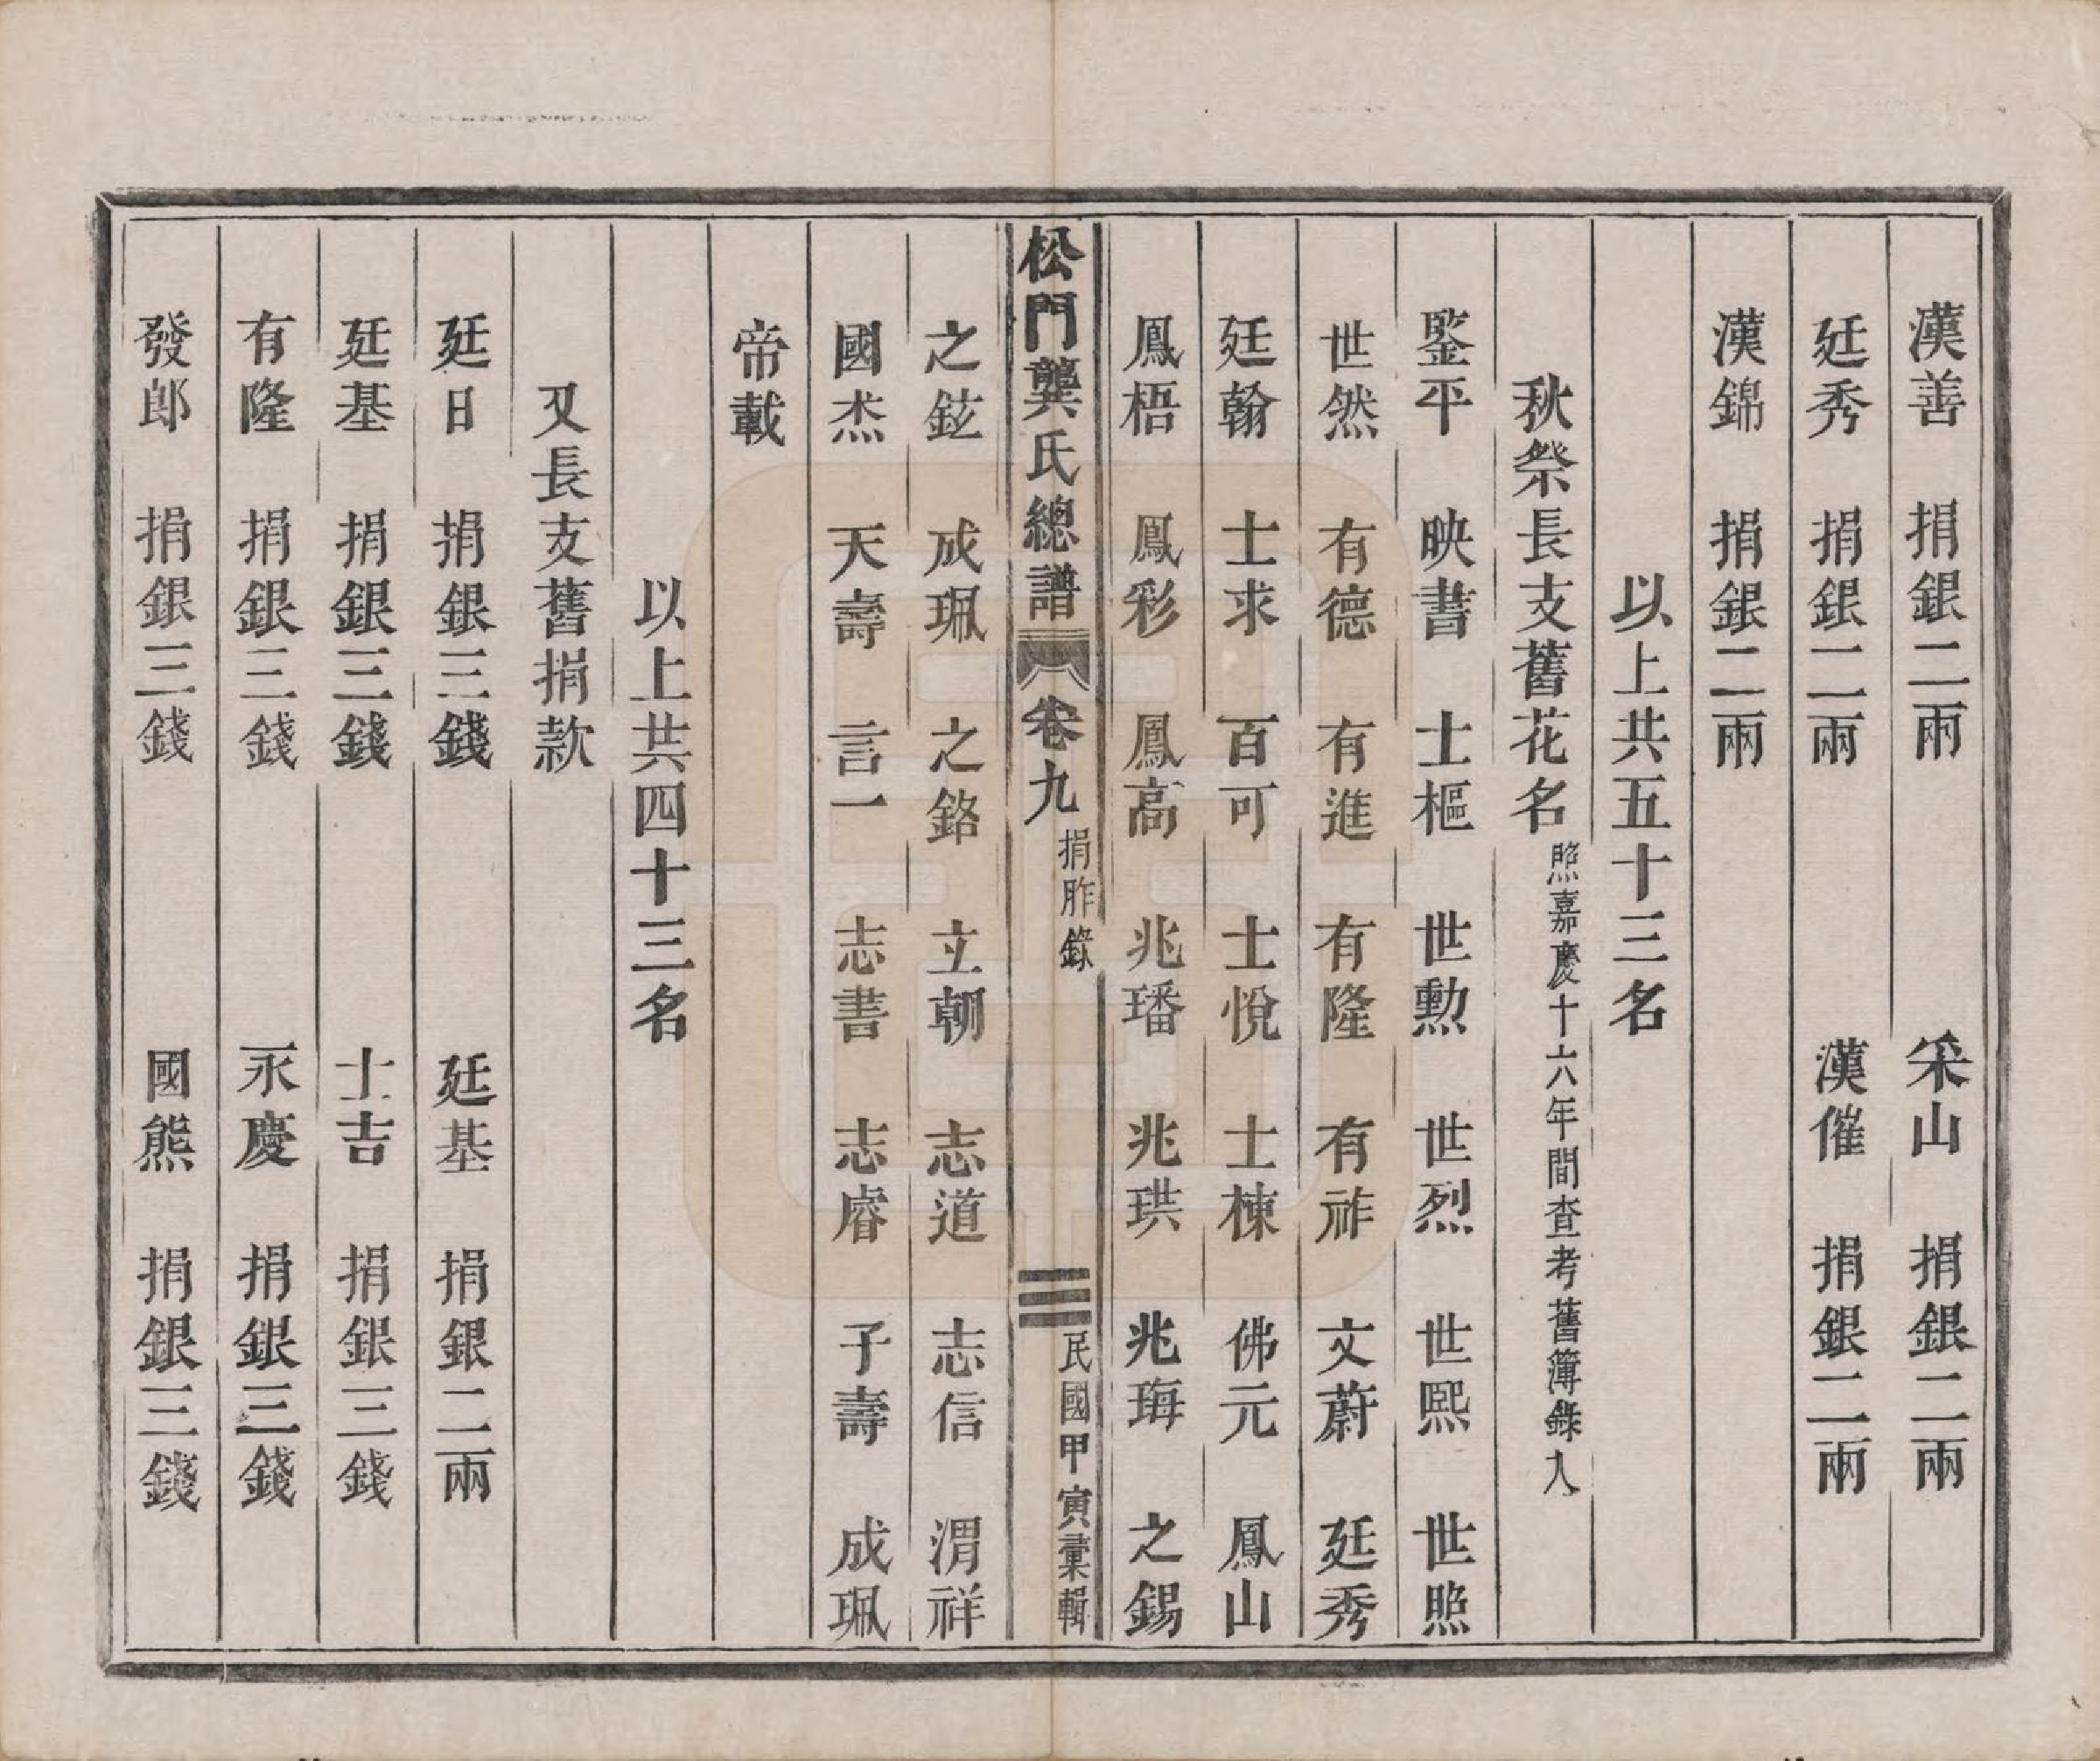 漢善　捐銀二兩　釆山　捐銀二兩
廷秀　捐銀二兩　漢催　捐銀二兩
漢錦　捐銀二兩
以上共五十三名
秋祭長支舊花名照嘉慶十六年間查考舊簿錄入
鑒平　映書　士樞　世勲　世烈　世熙　世照
世然　有德　有進　有隆　有祚　文蔚　廷秀
廷翰　士求　百可　士悅　士棟　佛元　鳳山
鳳梧　鳳彩　鳳高　兆璠　兆珙　兆珻　之錫
松門龔氏總譜　卷九　捐胙錄　三　民國甲寅彙輯
之鉉　成珮　之銘　立朝　志道　志信　渭祥
國杰　天壽　言一　志書　志睿　子壽　成珮
帝載
以上共四十三名
又長支舊捐款
廷日　捐銀三錢　廷基　捐銀二兩
廷基　捐銀三錢　士吉　捐銀三錢
有隆　捐銀三錢　永慶　捐銀三錢
發郎　捐銀三錢　國熊　捐銀三錢